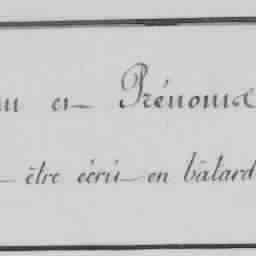 et Prénoms
être écrit en bâtard